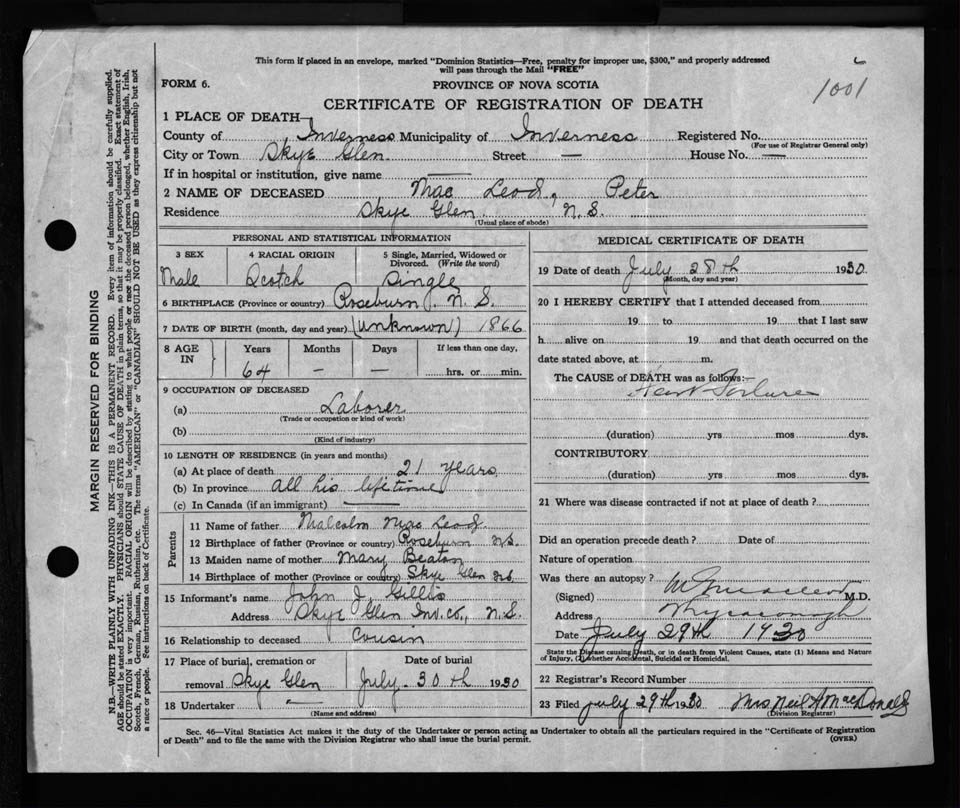 This form if placed in an envelope, marked "Dominion Statistics—Free, penalty for improper use, $300," and properly addressed
will pass through the Mail "FREE"
FORM 6.
PROVINCE OF NOVA SCOTIA
1001
CERTIFICATE OF REGISTRATION OF DEATH
1 PLACE OF DEATH—
County of Inverness Municipality of Inverness Registered No.
(For use of Registrar General only)
City or Town Skye Glen Street — House No. —
If in hospital or institution, give name —
2 NAME OF DECEASED Mac Leod, Peter
Residence Skye Glen N.S.
(Usual place of abode)
PERSONAL AND STATISTICAL INFORMATION
3 SEX 4 RACIAL ORIGIN 5 Single, Married, Widowed or Divorced. (Write the word)
Male Scotch Single
6 BIRTHPLACE (Province or country) Roseburn, N.S.
7 DATE OF BIRTH (month, day and year) (Unknown) 1866
8 AGE IN Years Months Days If less than one day,
64 — — hrs. or min.
9 OCCUPATION OF DECEASED
(a) Laborer
(Trade or occupation or kind of work)
(b)
(Kind of industry)
10 LENGTH OF RESIDENCE (in years and months)
(a) At place of death 21 years
(b) In province all his lifetime
(c) In Canada (if an immigrant) —
Parents
11 Name of father Malcolm Mac Leod
12 Birthplace of father (Province or country) Roseburn N.S.
13 Maiden name of mother Mary Beaton
14 Birthplace of mother (Province or country) Skye Glen N.S.
15 Informant's name John J. Gillis
Address Skye Glen Inv. co., N.S.
16 Relationship to deceased Cousin
17 Place of burial, cremation or removal Skye Glen Date of burial July 30th 1930
18 Undertaker —
(Name and address)
MEDICAL CERTIFICATE OF DEATH
19 Date of death July 28th 1930.
(Month, day and year)
20 I HEREBY CERTIFY that I attended deceased from
19 to 19 that I last saw
h alive on 19 and that death occurred on the
date stated above, at m.
The CAUSE of DEATH was as follows:—
Heart Failure
(duration) yrs mos dys.
CONTRIBUTORY
(duration) yrs mos dys.
21 Where was disease contracted if not at place of death?
Did an operation precede death? Date of
Nature of operation
Was there an autopsy?
(Signed) M.D.
Address Whycocomagh
Date July 29th 1930
State the Disease causing Death, or in death from Violent Causes, state (1) Means and Nature
of Injury, (2) whether Accidental, Suicidal or Homicidal.
22 Registrar's Record Number
23 Filed July 29th 1930 Mrs Neil A MacDonald
(Division Registrar)
Sec. 46—Vital Statistics Act makes it the duty of the Undertaker or person acting as Undertaker to obtain all the particulars required in the "Certificate of Registration
of Death" and to file the same with the Division Registrar who shall issue the burial permit.
(OVER)
MARGIN RESERVED FOR BINDING
N.B.—WRITE PLAINLY WITH UNFADING INK—THIS IS A PERMANENT RECORD. Every item of information should be carefully supplied.
AGE should be stated EXACTLY. PHYSICIANS should STATE CAUSE OF DEATH in plain terms, so that it may be properly classified. Exact statement of
OCCUPATION is very important. RACIAL ORIGIN will be described by stating to what people or race the deceased person belonged, whether English, Irish,
Scotch, French, German, Russian, Ruthenian, etc. The terms "AMERICAN" or "CANADIAN" SHOULD NOT BE USED as they express citizenship but not
a race or people. See instructions on back of Certificate.